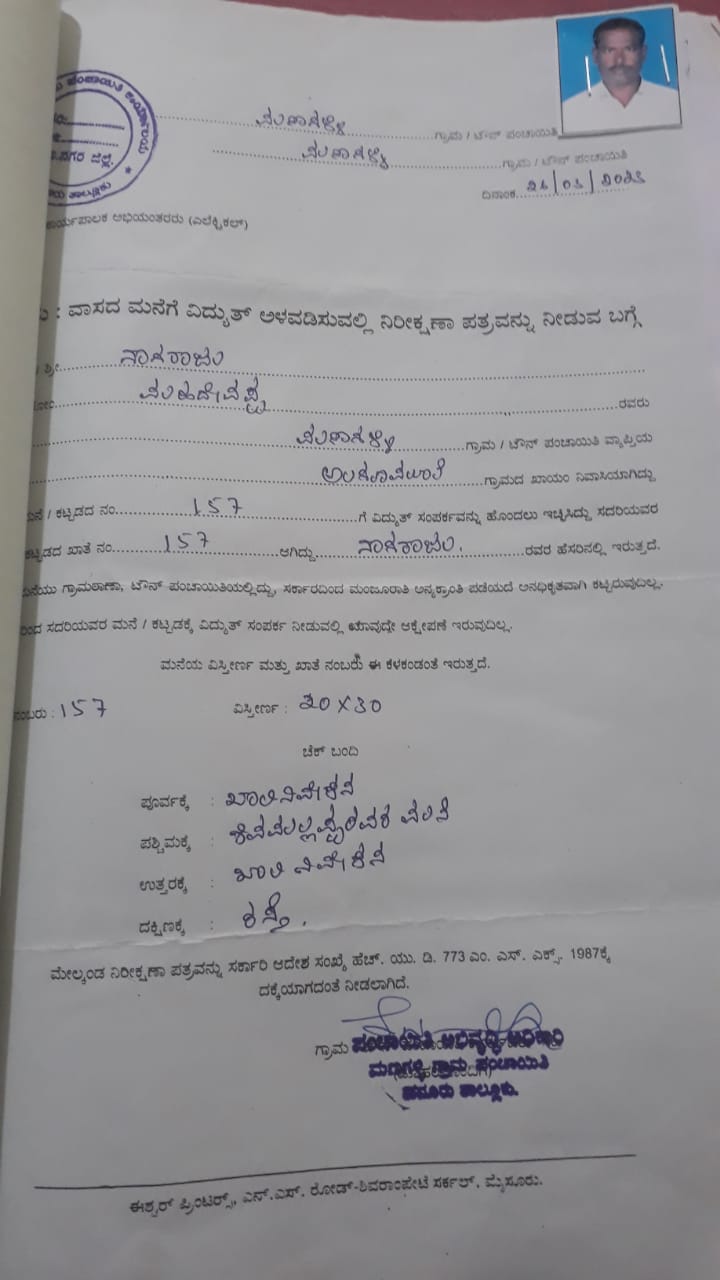 ಪಂಚಾಯಿತಿ ಕಾರ್ಯಾಲಯ
ಮಣಗಳ್ಳಿ ಗ್ರಾಮ / ಟೌನ್ ಪಂಚಾಯಿತಿ
ಮಣಗಳ್ಳಿ ಗ್ರಾಮ / ಟೌನ್ ಪಂಚಾಯಿತಿ
ದಿನಾಂಕ
ಕಾರ್ಯಪಾಲಕ ಅಭಿಯಂತರರು (ಎಲೆಕ್ಟ್ರಿಕಲ್)
: ವಾಸದ ಮನೆಗೆ ವಿದ್ಯುತ್ ಅಳವಡಿಸುವಲ್ಲಿ ನಿರೀಕ್ಷಣಾ ಪತ್ರವನ್ನು ನೀಡುವ ಬಗ್ಗೆ
ಶ್ರೀ ನಾಗರಾಜು
ಮಹದೇವಪ್ಪ ರವರು
ಮಣಗಳ್ಳಿ ಗ್ರಾಮ / ಟೌನ್ ಪಂಚಾಯಿತಿ ವ್ಯಾಪ್ತಿಯ
ಗ್ರಾಮದ ಖಾಯಂ ನಿವಾಸಿಯಾಗಿದ್ದು
ಮನೆ / ಕಟ್ಟಡದ ನಂ. 157 ಗೆ ವಿದ್ಯುತ್ ಸಂಪರ್ಕವನ್ನು ಹೊಂದಲು ಇಚ್ಛಿಸಿದ್ದು ಸದರಿಯವರ
ಕಟ್ಟಡದ ಖಾತೆ ನಂ. 157 ಆಗಿದ್ದು ನಾಗರಾಜು. ರವರ ಹೆಸರಿನಲ್ಲಿ ಇರುತ್ತದೆ.
ಮನೆಯು ಗ್ರಾಮಠಾಣಾ, ಟೌನ್ ಪಂಚಾಯಿತಿಯಲ್ಲಿದ್ದು, ಸರ್ಕಾರದಿಂದ ಮಂಜೂರಾತಿ ಅನ್ಯಕ್ರಾಂತಿ ಪಡೆಯದೆ ಅನಧಿಕೃತವಾಗಿ ಕಟ್ಟಿರುವುದಿಲ್ಲ.
ಸದರಿಯವರ ಮನೆ / ಕಟ್ಟಡಕ್ಕೆ ವಿದ್ಯುತ್ ಸಂಪರ್ಕ ನೀಡುವಲ್ಲಿ ಯಾವುದೇ ಆಕ್ಷೇಪಣೆ ಇರುವುದಿಲ್ಲ.
ಮನೆಯ ವಿಸ್ತೀರ್ಣ ಮತ್ತು ಖಾತೆ ನಂಬರು ಈ ಕೆಳಕಂಡಂತೆ ಇರುತ್ತದೆ.
ನಂಬರು : 157 ವಿಸ್ತೀರ್ಣ : 20 X 30
ಚೆಕ್ ಬಂದಿ
ಪೂರ್ವಕ್ಕೆ : ಖಾಲಿ ನಿವೇಶನ
ಪಶ್ಚಿಮಕ್ಕೆ : ಮನೆ
ಉತ್ತರಕ್ಕೆ : ಖಾಲಿ ನಿವೇಶನ
ದಕ್ಷಿಣಕ್ಕೆ : ರಸ್ತೆ.
ಮೇಲ್ಕಂಡ ನಿರೀಕ್ಷಣಾ ಪತ್ರವನ್ನು ಸರ್ಕಾರಿ ಆದೇಶ ಸಂಖ್ಯೆ ಹೆಚ್. ಯು. ಡಿ. 773 ಎಂ. ಎಸ್. ಎಕ್ಸ್. 1987ಕ್ಕೆ
ದಕ್ಕೆಯಾಗದಂತೆ ನೀಡಲಾಗಿದೆ.
ಗ್ರಾಮ ಪಂಚಾಯಿತಿ ಅಭಿವೃದ್ಧಿ ಅಧಿಕಾರಿ
ಮಣಗಳ್ಳಿ ಗ್ರಾಮ ಪಂಚಾಯಿತಿ
ಹನೂರು ತಾಲ್ಲೂಕು.
ಈಶ್ವರ್ ಪ್ರಿಂಟರ್ಸ್, ಎನ್.ಎಸ್. ರೋಡ್-ಶಿವರಾಂಪೇಟೆ ಸರ್ಕಲ್, ಮೈಸೂರು.